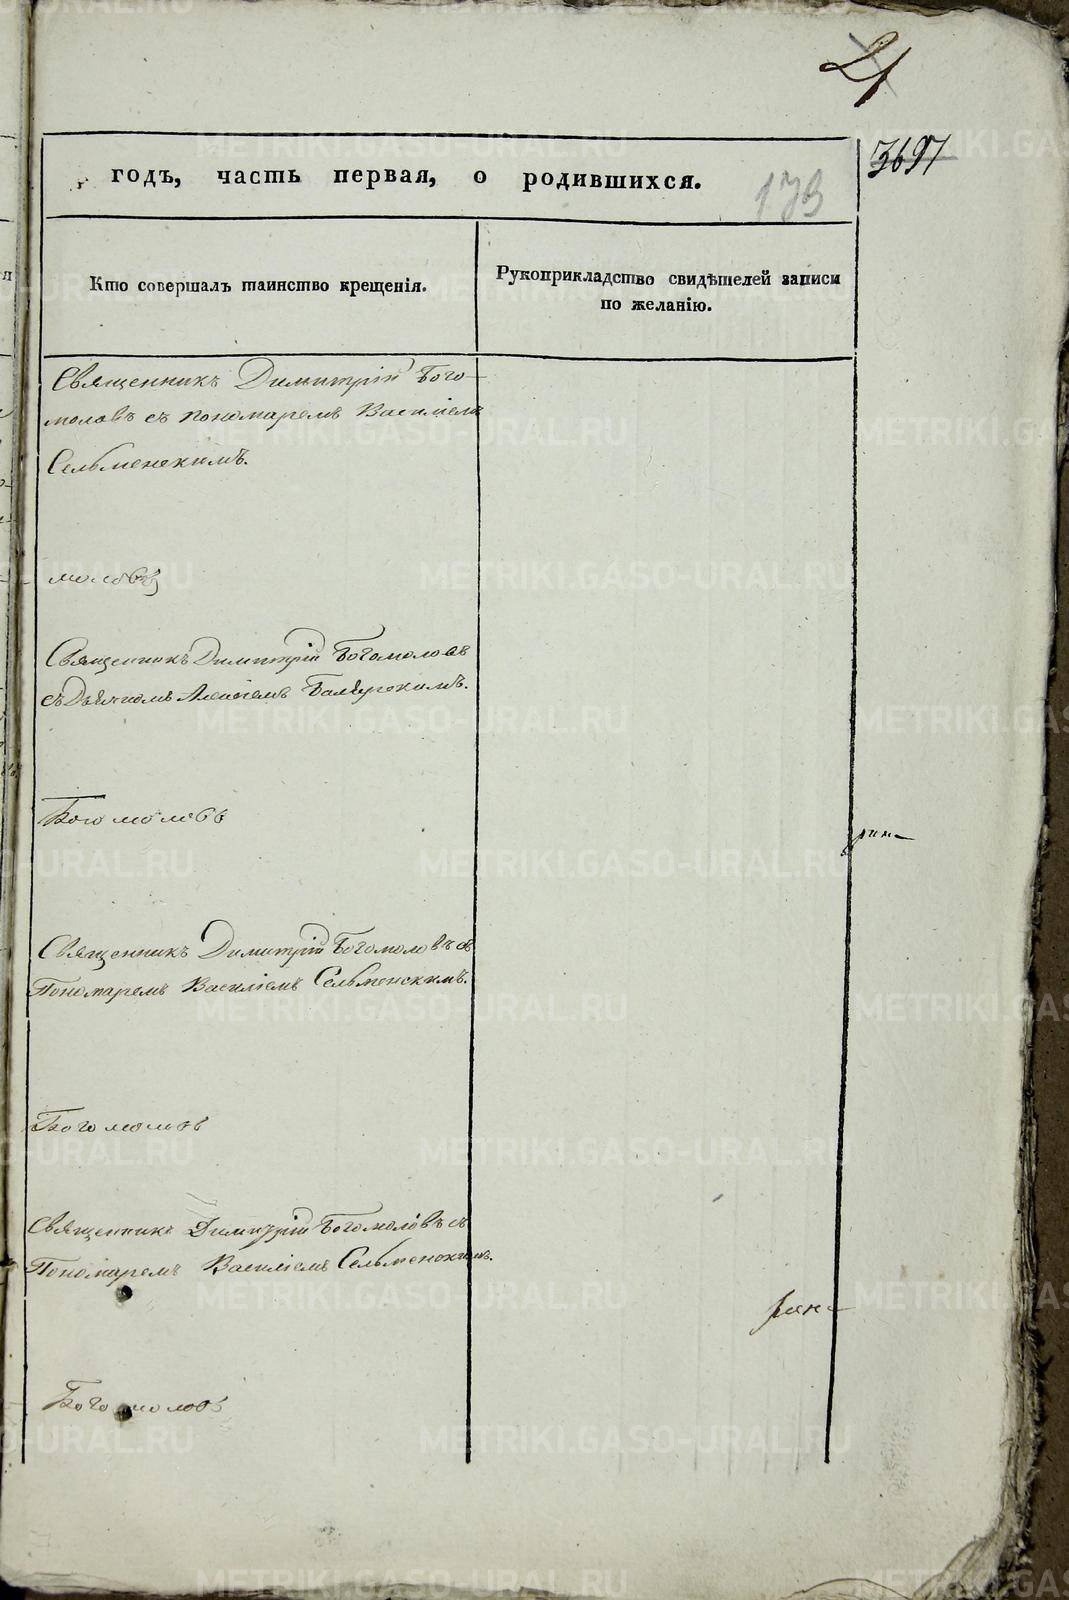 21
3697
годъ, часть первая, о родившихся.
173
Кто совершалъ таинство крещенія.
Рукоприкладство свидѣтелей записи
по желанію.
Священникъ Димитрій Бого-
моловъ съ пономаремъ Василіемъ
Сельменскимъ.
моловъ
Священникъ Димитрій Богомоловъ
съ Дьячкомъ Алексіемъ
Богомоловъ
Священникъ Димитрій Богомоловъ съ
Пономаремъ Василіемъ Сельменскимъ.
Богомоловъ
Священникъ Димитрій Богомоловъ съ
Пономаремъ Василіемъ Сельменскимъ.
Богомоловъ
METRIKI.GASO-URAL.RU